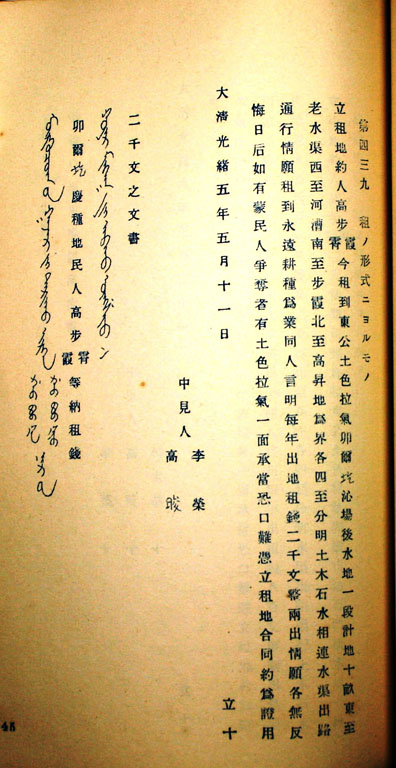 第四三九　租ノ形式ニヨルモノ
立租地約人高步霞霄今租到東公土色拉氣卯爾圪沁場後水地一段計地十畝東至
老水渠西至河漕南至步霞北至高昇地爲界各四至分明土木石水相連水渠出路
通行情願租到永遠耕種爲業同人言明每年出地租錢二千文整兩出情願各無反
悔日后如有蒙民人爭奪者有土色拉氣一面承當恐口難憑立租地合同約爲證用
大淸光緖五年五月十一日　立十
中見人　李榮
高晙
二千文之文書
卯爾圪慶種地民人高步霄霞等納租錢
48